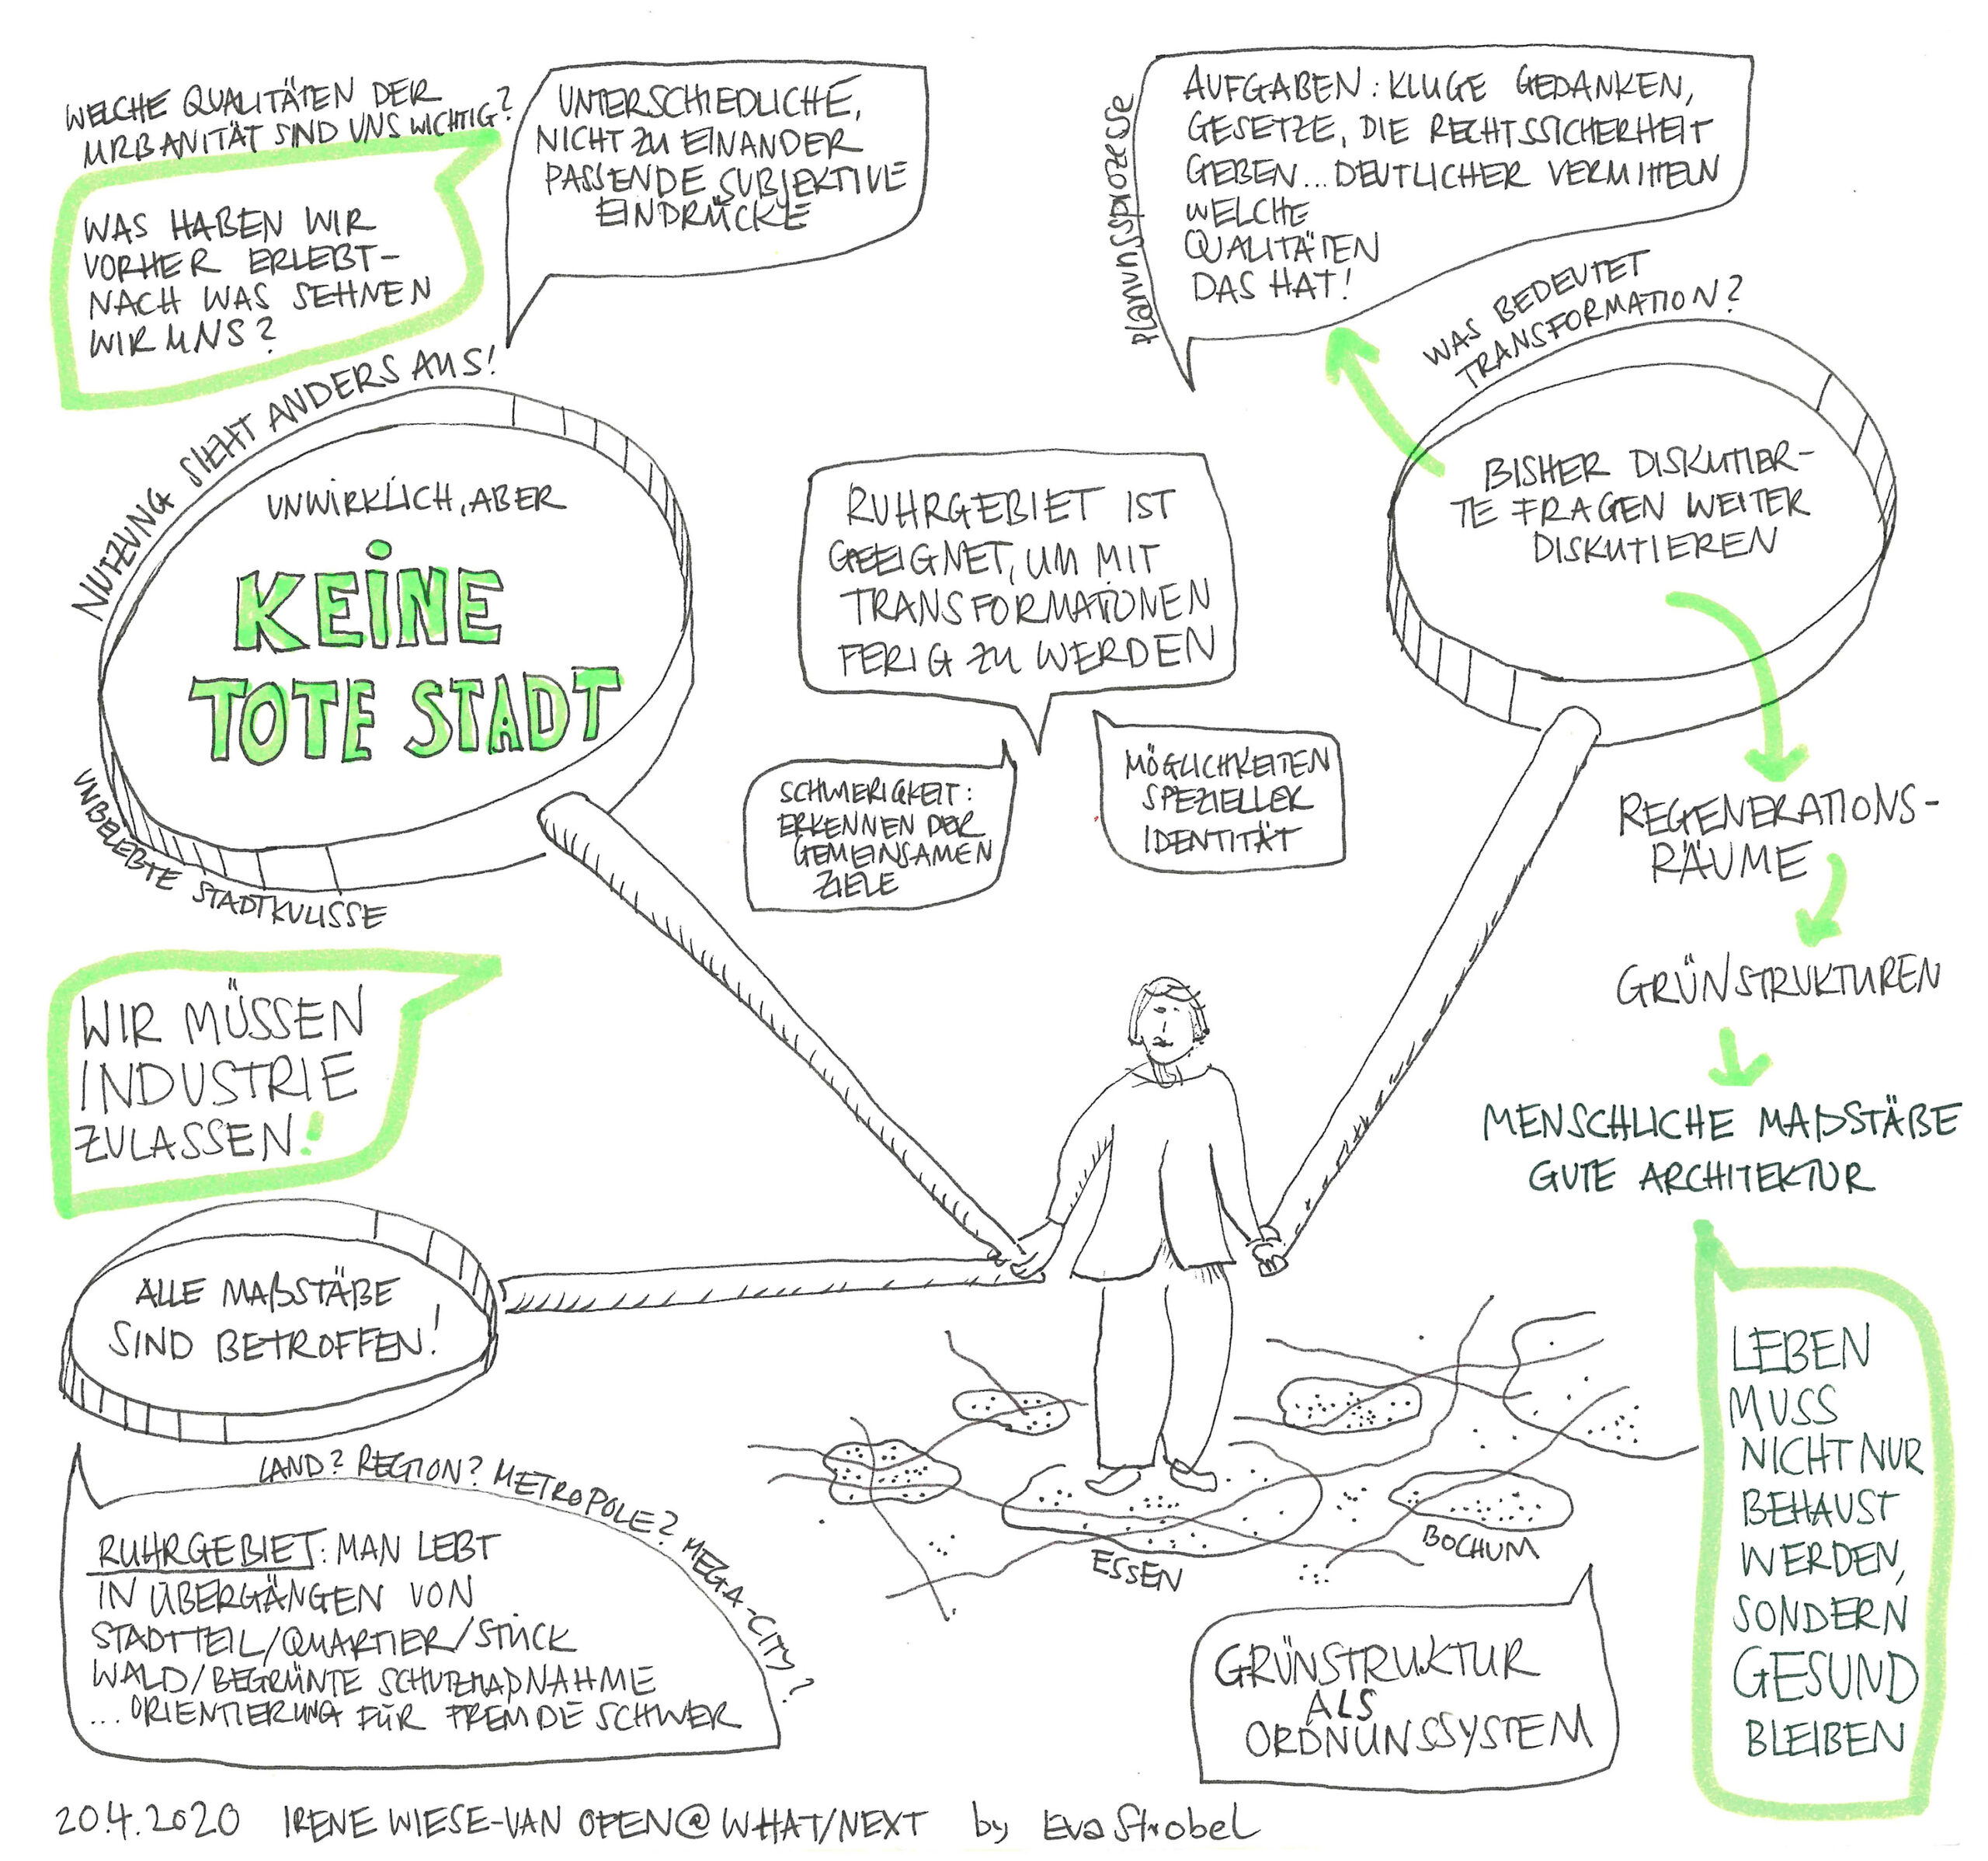 WELCHE QUALITÄTEN DER
URBANITÄT SIND UNS WICHTIG?
WAS HABEN WIR
VORHER ERLEBT-
NACH WAS SEHNEN
WIR UNS?
UNTERSCHIEDLICHE,
NICHT ZU EINANDER
PASSENDE SUBJEKTIVE
EINDRÜCKE
Planungsprozesse
AUFGABEN: KLUGE GEDANKEN,
GESETZE, DIE RECHTSSICHERHEIT
GEBEN... DEUTLICHER VERMITTELN
WELCHE
QUALITÄTEN
DAS HAT!
WAS BEDEUTET
TRANSFORMATION?
NUTZUNG SIEHT ANDERS AUS!
UNWIRKLICH, ABER
KEINE
TOTE STADT
UNBELEBTE STADTKULISSE
RUHRGEBIET IST
GEEIGNET, UM MIT
TRANSFORMATIONEN
FERIG ZU WERDEN
SCHWERIGKEIT:
ERKENNEN DER
GEMEINSAMEN
ZIELE
MÖGLICHKEITEN
SPEZIELLER
IDENTITÄT
BISHER DISKUTIER-
TE FRAGEN WEITER
DISKUTIEREN
REGENERATIONS-
RÄUME
GRÜNSTRUKTUREN
MENSCHLICHE MAßSTÄBE
GUTE ARCHITEKTUR
WIR MÜSSEN
INDUSTRIE
ZULASSEN!
ALLE MAßSTÄBE
SIND BETROFFEN!
LAND? REGION? METROPOLE? MEGA-CITY?
RUHRGEBIET: MAN LEBT
IN ÜBERGÄNGEN VON
STADTTEIL/QUARTIER/STÜCK
WALD/BEGRÜNTE SCHUTZMAßNAHME
... ORIENTIERUNG FÜR FREMDE SCHWER
ESSEN
BOCHUM
GRÜNSTRUKTUR
ALS
ORDNUNSSYSTEM
LEBEN
MUSS
NICHT NUR
BEHAUST
WERDEN,
SONDERN
GESUND
BLEIBEN
20.4.2020 IRENE WIESE-VAN OFEN@WHAT/NEXT by Eva Strobel